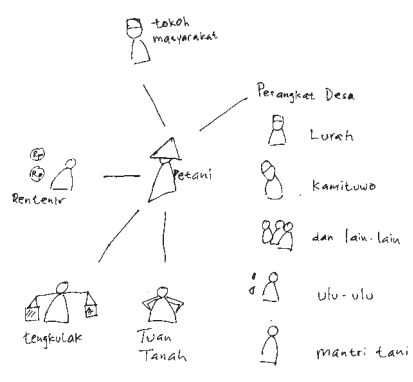 tokoh
masyarakat
Perangkat Desa
Lurah
Rp
Rp
Petani
Rentenir
Kamituwo
dan lain-lain
ulu-ulu
tengkulak
Tuan
Tanah
mantri tani